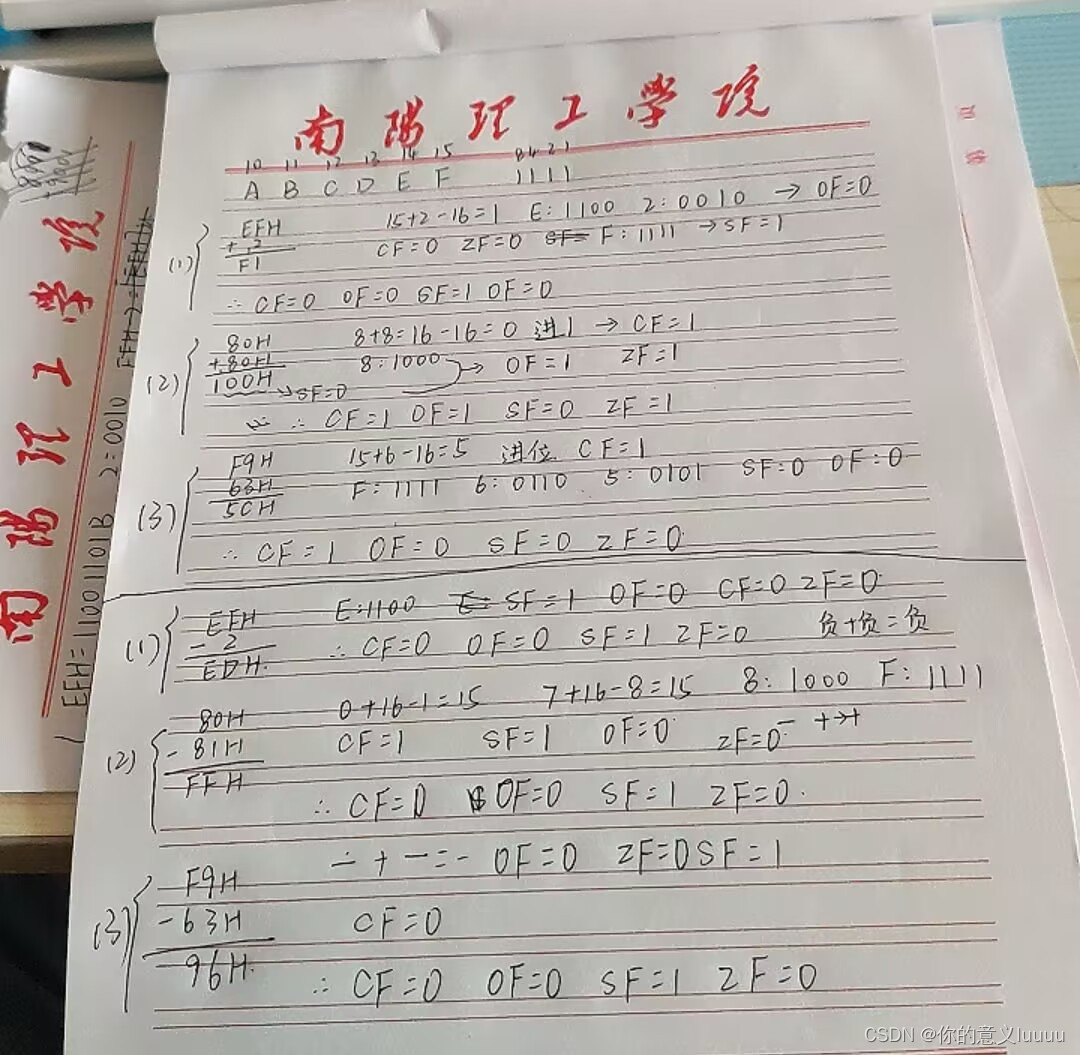 南陽理工學院
10 11 12 13 14 15 8421
A B C D E F 1111
(1) EFH 15+2-16=1 E:1100 2:0010 → OF=0
+ 2 CF=0 ZF=0 SF= F:1111 → SF=1
F1
∴ CF=0 OF=0 SF=1 OF=0
(2) 80H 8+8=16-16=0 进1 → CF=1
+80H 8:1000 → OF=1 ZF=1
100H → SF=0
∴ CF=1 OF=1 SF=0 ZF=1
(3) F9H 15+6-16=5 进位 CF=1
63H F:1111 6:0110 5:0101 SF=0 OF:0
5CH
∴ CF=1 OF=0 SF=0 ZF=0
(1) EFH E:1100 E= SF=1 OF=0 CF=0 ZF=0
- 2 ∴ CF=0 OF=0 SF=1 ZF=0 负+负=负
EDH.
(2) 80H 0+16-1=15 7+16-8=15 8:1000 F:1111
- 81H CF=1 SF=1 OF=0 ZF=0
FFH
∴ CF=0 OF=0 SF=1 ZF=0.
(3) F9H -+-=- OF=0 ZF=0 SF=1
-63H CF=0
96H.
∴ CF=0 OF=0 SF=1 ZF=0
南陽理工學院
EFH=11001101B 2:0010
CSDN @你的意义luuuu